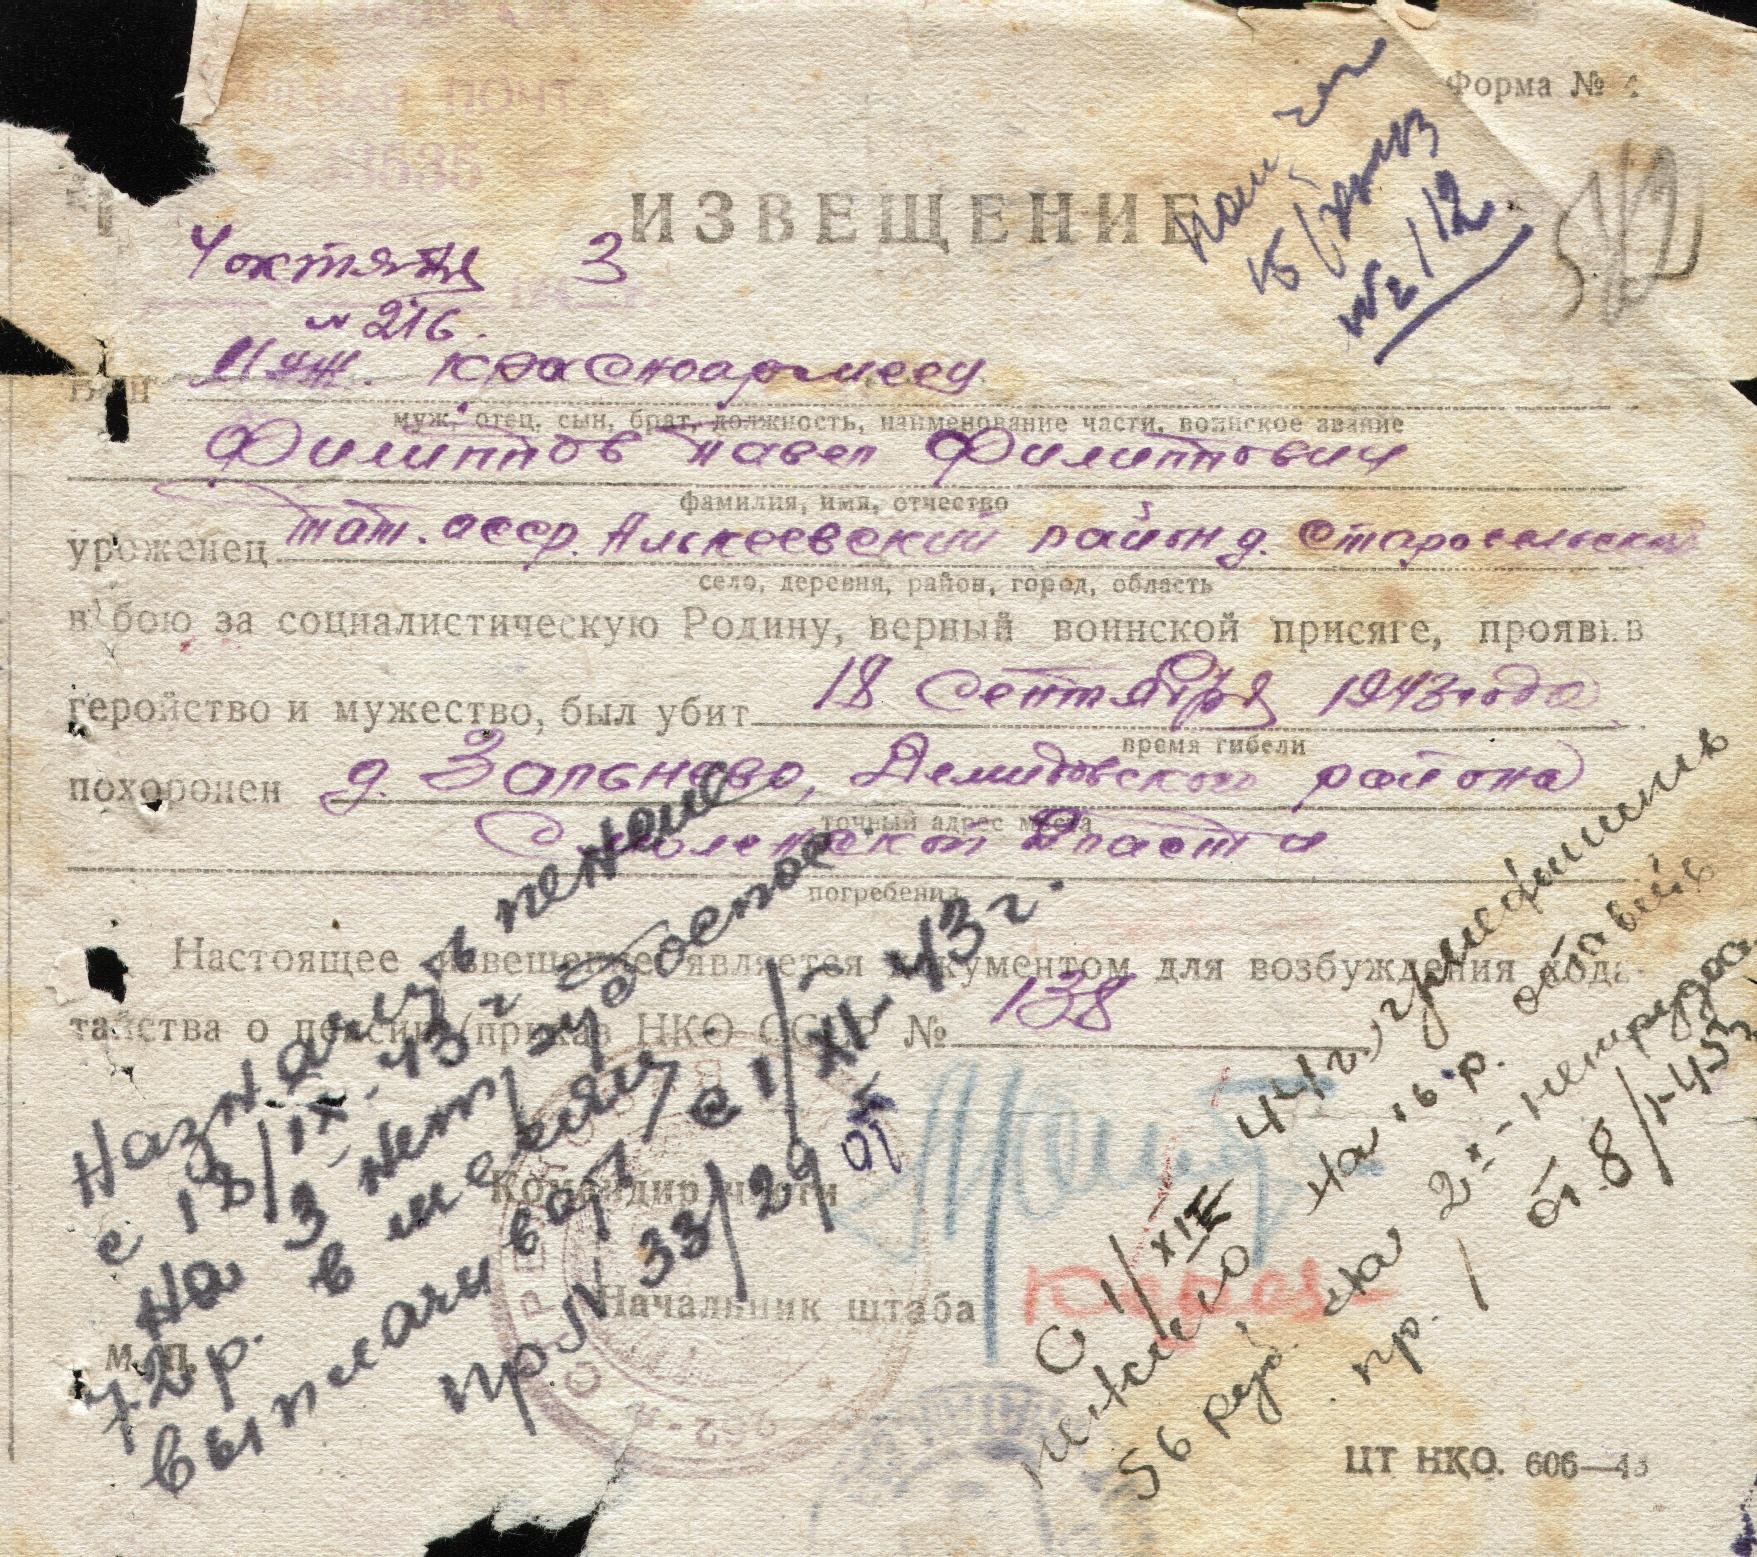 Форма №
ПОЧТА
3535
ИЗВЕЩЕНИЕ
4 октября 3
№ 216.
15/
№ 2/12
Ваш муж. красноармеец
муж, отец, сын, брат, должность, наименование части, воинское звание
Филиппов Павел Филиппович
фамилия, имя, отчество
уроженец тат. асср. Алькеевский район д.
село, деревня, район, город, область
в бою за социалистическую Родину, верный воинской присяге, проявив
геройство и мужество, был убит 18 сентября 1943 года
время гибели
похоронен д. Запьнево, Демидовского района
точный адрес места
Смоленской области
погребения
Настоящее извещение является документом для возбуждения хода-
тайства о пенсии (приказ НКО СССР № 138
Командир части
Начальник штаба
М. П.
Назначить пенсию
с 18/IX-43 г
на 3 нет
в месяц
72 р.
выплачивать с 1/XI-43 г.
пр № 33/29 от
С 1/XII 44 г.
на 16 р.
56 руб. на 2х
пр. от 8/I-45
ЦТ НКО. 606—43